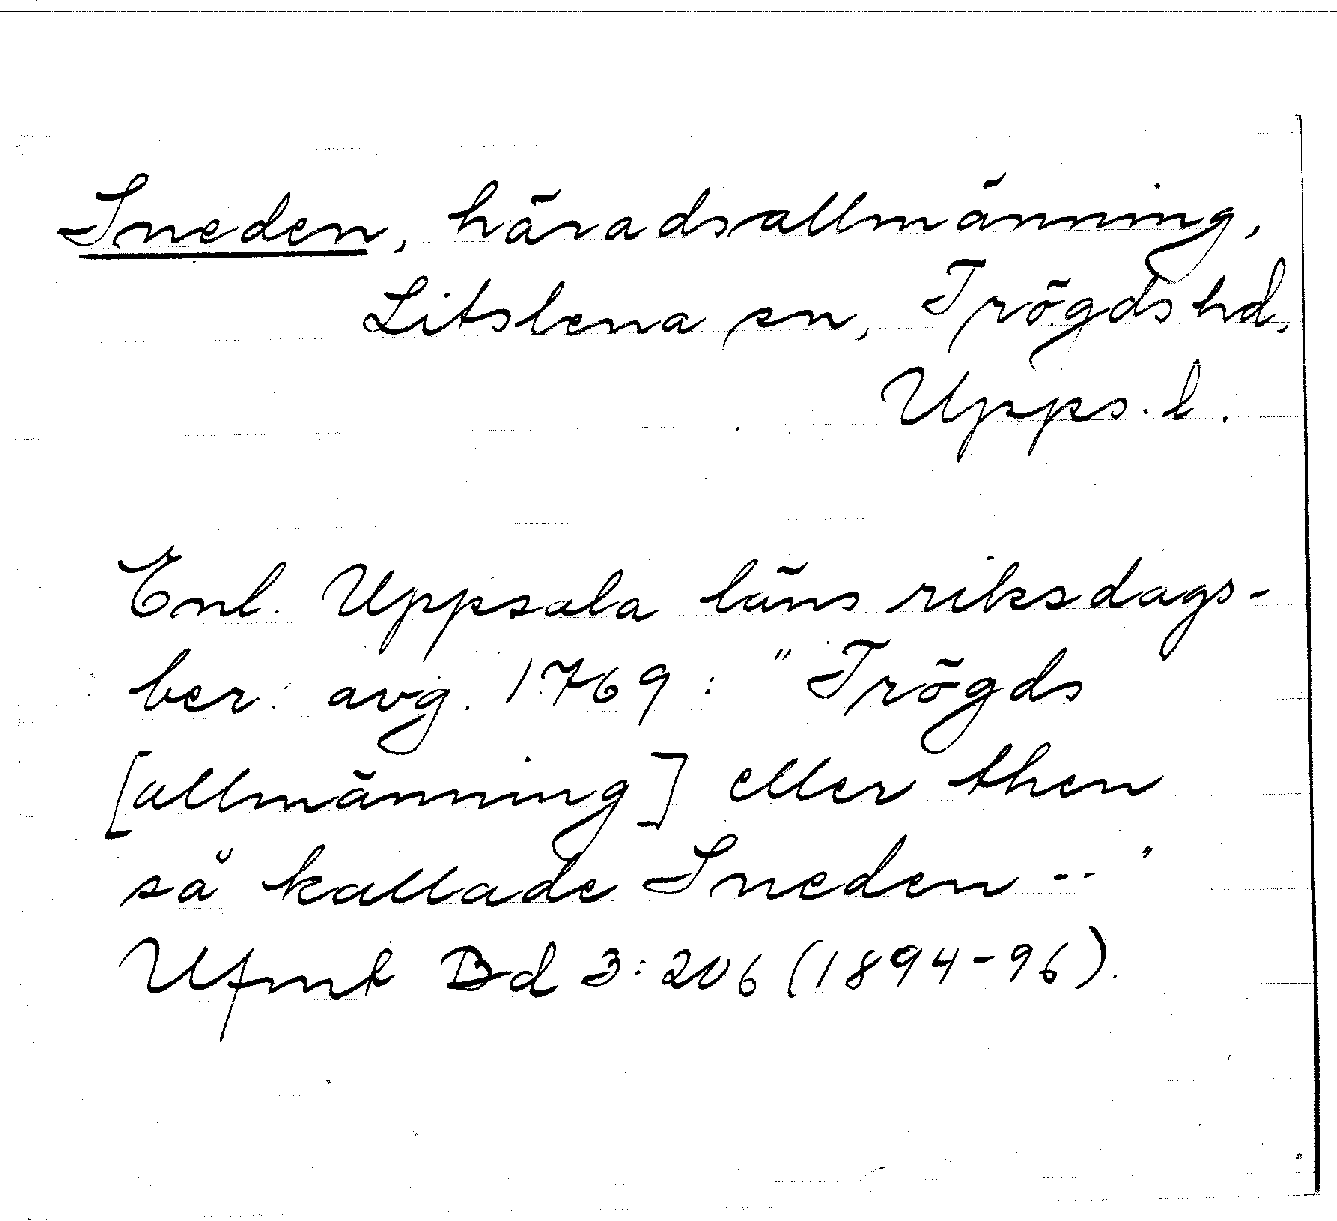 Sneden, häradsallmänning,
Litslena sn, Trögds hd,
Upps. l.
Enl. Uppsala läns riksdags-
ber. avg. 1769: "Trögds
[allmänning] eller then
så kallade Sneden.."
Ufmt Bd 3:206 (1894-96).